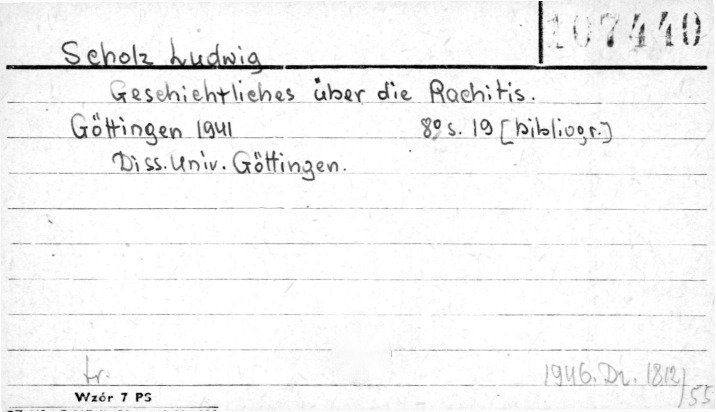 107440
Scholz Ludwig
Geschichtliches über die Rachitis.
Göttingen 1941 8º s. 19 [bibliogr.]
Diss. Univ. Göttingen.
tr. 1946. Dr. 1812/55
Wzór 7 PS